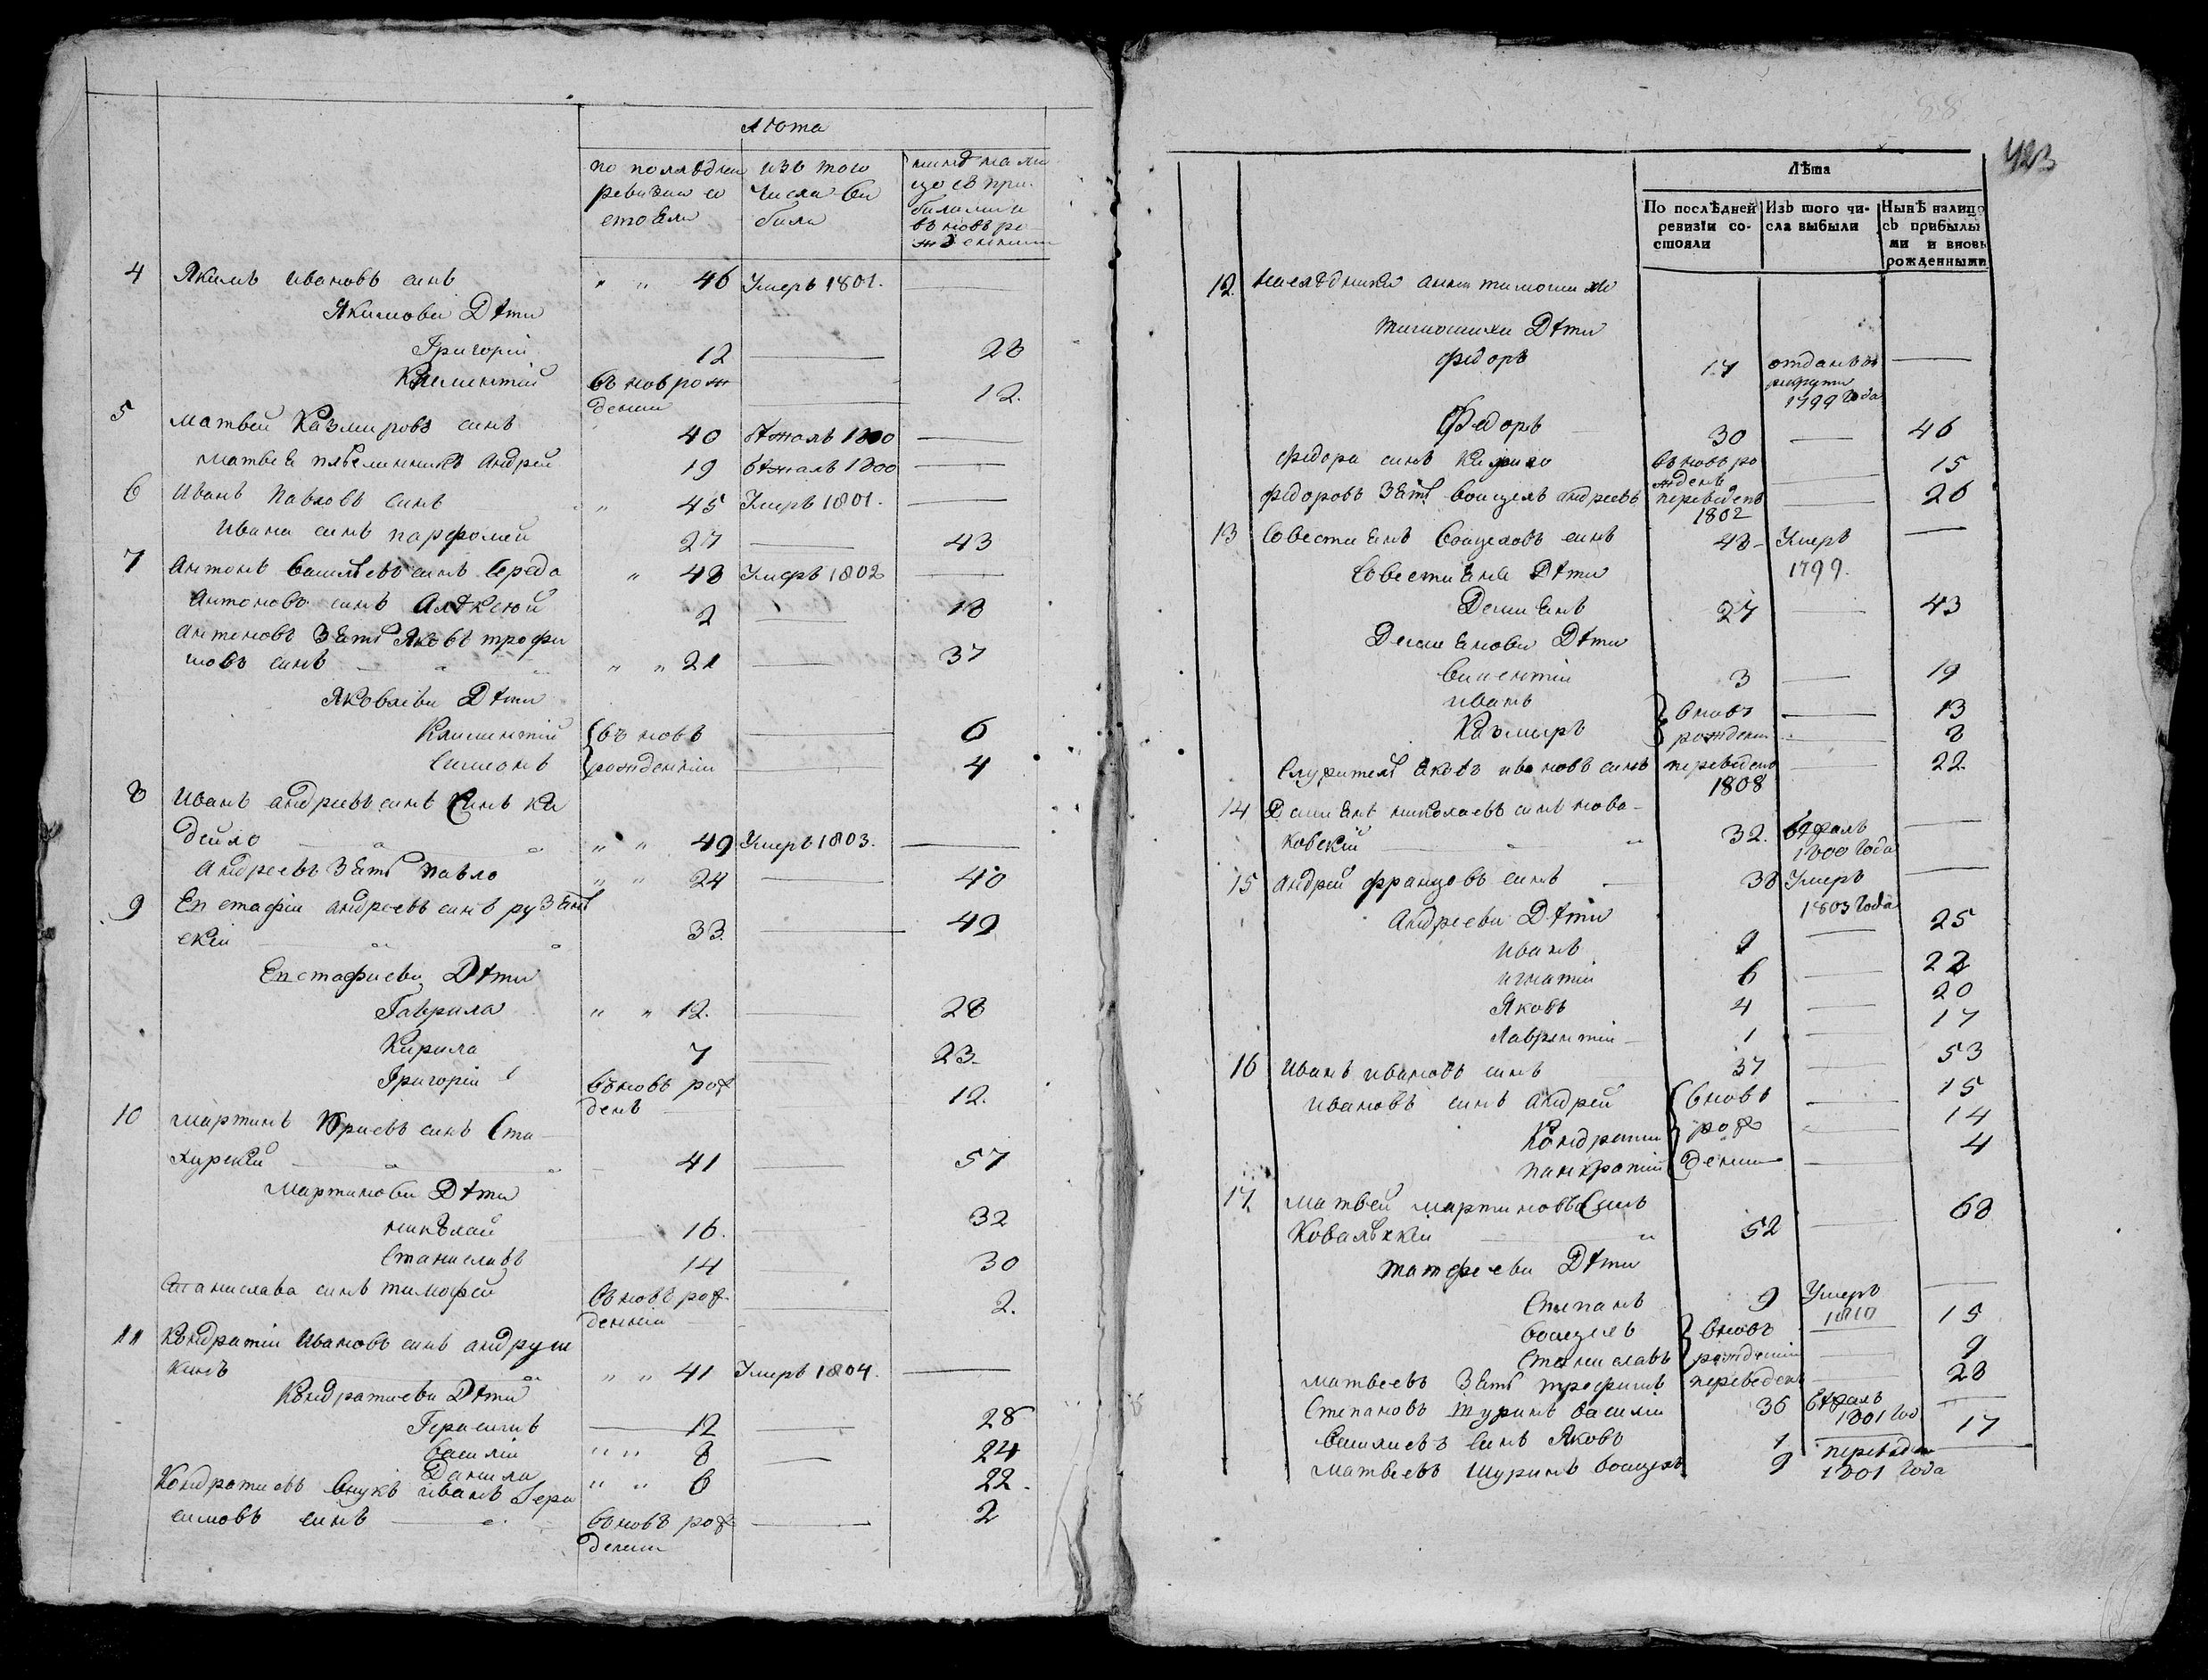 Лѣта
изъ того
числа вы
были
4 Якимъ ивановъ синъ " " 46 Умеръ 1801.
Якимови Дѣти
Григорій 12 28
Климентій въновъ рож 12.
дении
5 матвей Казмировъ синъ 40 бѣжалъ 1800
матвеѣ племенникъ андрей 19 бѣжалъ 1800
6 Иванъ Павловъ синъ " 45 Умеръ 1801.
Ивана синъ парфомей 27 43
7 Антонъ василѣвъ синъ Середа " 48 Умеръ 1802
Антоновъ синъ Алѣксѣй 2 18
Антоновъ Зять Яковъ трофи
мовъ синъ " " 21 37
Яковлеви Дѣти
Климентій въ новъ 6
Симионъ рожденнии 4
8 Иванъ андреевъ синъ
дейло " " 49 Умеръ 1803.
Андреевъ Зять Павло " " 24 40
9 Епстафіи андреевъ синъ рузан
скіи 33. 49
Епстафиеви Дѣти
Гаврила " " 12. 28
Кирила 7 23.
Григоріи въновъ рож 12.
денъ
10 мартинъ Юриевъ синъ Ста
хурскіи 41 57
мартинови Дѣти
миколай 16. 32
Станиславъ 14 30
Станислава синъ тимофей въновъ рож 2.
денніи
11 Кондратіи Ивановъ синъ андруш
кинъ " " 41 Умеръ 1804.
Кондратиеви Дѣти
Герасимъ 12 28
василіи " " 8 24
Данила " " 6 22.
Кондратиевъ внукъ иванъ Гера
симовъ синъ въновъ рож 2
дении
423
Лѣта
По послѣдней ревизіи со- стояли
Изъ того чи- сла выбыли
Нынѣ налицо съ прибылы ми и вновь рожденными
12. наслѣдники
тимошихи Дѣти
федоръ 17 отданъ въ
рекрути
1799 Года
Федоръ 30 46
федора синъ въновъ ро 15
жденъ
федоровъ Зять воицехъ андреевъ переведенъ 26
1802
13 Совестиянъ воицеховъ синъ 48 Умеръ
Совестияна Дѣти 1799.
Демиянъ 27 43
Демиянови Дѣти
викентіи 3 19
иванъ вновъ 13
Казмиръ рождени 8
Служитель яковъ ивановъ синъ переведенъ 22.
1808
14 Демиянъ николаевъ синъ нова-
ковскій 32. бѣжалъ
1800 Года
15 андрей францовъ синъ 38 Умеръ
1803 Года
Андрееви Дѣти
иванъ 9 25
игнатіи 6 22
Яковъ 4 20
Лаврентіи 1 17
16 Иванъ ивановъ синъ 37 53
ивановъ синъ андрей вновъ 15
Кондратіи рож 14
панкратій дении 4
17. матвей мартиновъ синъ
Ковалѣхкіи 52 68
матфееви Дѣти
Степанъ 9 Умеръ
1810
воицехъ вновъ 15
Станиславъ рожденіи 9
матвеевъ Зять трофимъ переведенъ 28
Степановъ шуринъ василіи 36 бѣжалъ
1801 Год
василиевъ Синъ Яковъ 1 17
матвеевъ шуринъ воицехъ 9 переведен
1801 Года